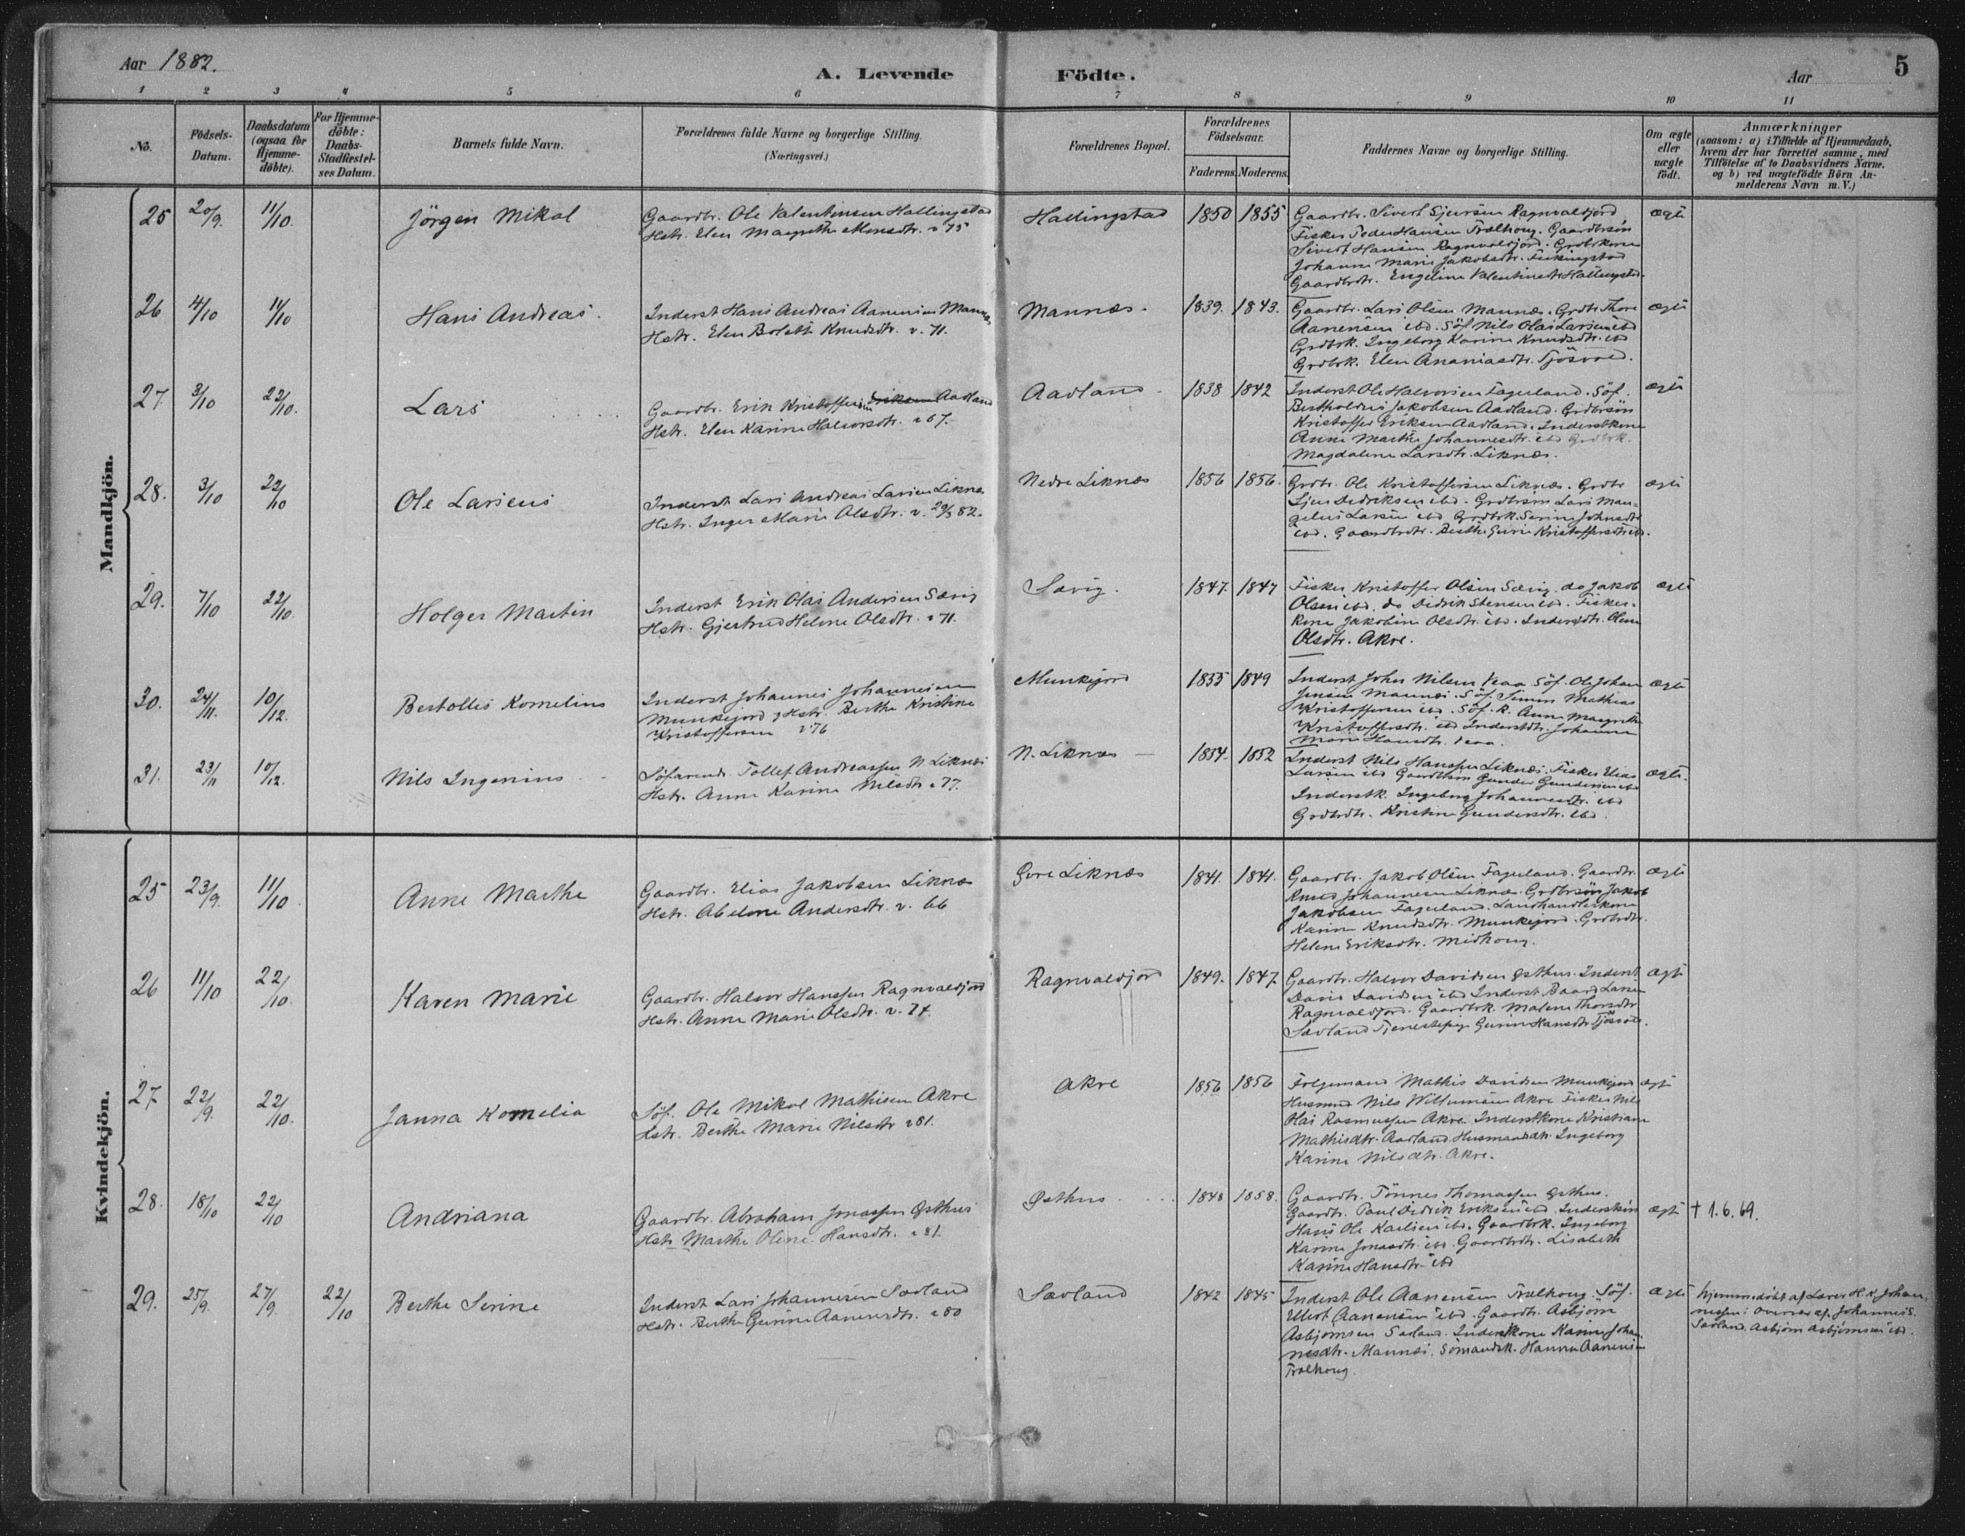 Aar 1882.
A. Levende
Födte.
Aar
5
1 2 3 4 5 6 7 8 9 10 11
No.
Födsels-
Datum.
Daabsdatum
(ogsaa for
Hjemme-
döbte).
For Hjemme-
döbte:
Daabs-
Stadfæstel-
ses Datum.
Barnets fulde Navn.
Forældrenes fulde Navne og borgerlige Stilling.
(Næringsvei.)
Forældrenes Bopæl.
Forældrenes
Födselsaar.
Faderens. Moderens.
Faddernes Navne og borgerlige Stilling.
Om ægte
eller
uægte
födt.
Anmærkninger
(saasom: a) i Tilfælde af Hjemmedaab,
hvem der har forrettet samme, med
Tilföielse af to Daabsvidners Navne,
og b) ved uægtefödte Börn An-
melderens Navn m. V.)
Mandkjön.
25
20/9.
11/10.
Jörgen Mikal
Gaardbr. Ole Valentinsen Hallingstad
Hstr. Elen Margrethe Monsdtr. v 75
Hallingstad
1850 1855
Gaardbr. Sivert Sjursen Ragnvaldsjord,
Fisker Peder Hansen Trælhoug. Gaardbrsön
Sivert Hansen Ragnvaldsjord. Grdbrkone
Johanne Marie Jakobsdtr.
Gaardbrdtr. Engeline Valentinsdtr Hallingstad.
ægte
26
4/10
11/10
Hans Andreas.
Inderst Hans Andreas Aanensen Mannes
Hstr. Elen Bolette Knudsdtr. v. 71.
Mannæs.
1839. 1843.
Gaardbr. Lars Olsen Mannæs. Grdbr Thore
Aanensen ibd. Söf Nils Olai Larsen ibd
Grdbrk. Ingeborg Karine Knudsdtr. ibd
Grdbrk. Elen Ananiasdtr. Tjösvold.
ægte
27.
3/10
22/10.
Lars
Gaardbr. Erik Kristoffersen Eriksen Aadland
Hstr. Elen Karine Halvorsdtr. v 67.
Aadland
1838 1842
Inderst Ole Halvorsen Fagerland. Söf.
Bertholdus Jakobsen Aadland. Grdbrsön
Kristoffer Eriksen Aadland. Inderstkone
Anne Marthe Johannesdtr. ibd Grdbrk.
Magdalene Larsdtr. Liknæs.
ægte
28.
3/10
22/10
Ole Larseus
Inderst Lars Andreas Larsen Liknæs
Hstr. Inger Marie Olsdtr. v. 29/3 82.
Nedre Liknæs
1856 1856.
Grdbr. Ole Kristoffersen Liknæs. Grdbr
Sjur Dedriksen ibd. Grdbrsön Lars Man-
gelus Larsen ibd Grdbrk. Serine Johnsdtr
ibd. Gaardbrdtr. Berthe Gurie Kristoffersdtr ibd.
ægte
29.
7/10
22/10.
Holger Martin
Inderst Erik Olai Andersen Sævig
Hstr. Gjertrud Helene Olsdtr. v 71.
Sævig.
1847. 1847
Fisker Kristoffer Olsen Sævig, do Jakob
Olsen ibd, do Didrik Stensen ibd. Fisker-
kone Jakobine Olsdtr. ibd. Inderstdtr. Olene
Olsdtr. Akre.
ægte
30.
24/11.
10/12.
Bertolles Kornelius
Inderst Johannes Johannesen
Munkejord, Hstr. Berthe Kristine
Kristoffersen v 76
Munkejord
1855 1849
Inderst John Nilsen Vaa Söf. Ole Johan
Jensen Mannæs. Söf. Simon Mathias
Kristoffersen ibd. Söf. K. Anne Margrethe
Kristoffersdtr. ibd Inderstdtr. Johanne
Marie Hansdtr. Vaa.
ægte
31.
23/11
10/12.
Nils Ingenius
Söfarende Tollef Andreassen N. Liknæs
Hstr. Anne Karine Nilsdtr v 77.
N. Liknæs
1854. 1852
Inderst Nils Hanssen Liknæs. Fisker Elias
Larsen ibd Gaardbrsön Gunder Gundersen ibd
Inderstk. Ingeborg Johannesdtr. ibd
Grdbrdtr. Kristine Gundersdtr. ibd.
ægte.
Kvindekjön.
25
23/9.
11/10.
Anne Marthe
Gaardbr. Elias Jakobsen Liknæs
Hstr. Abelone Andersdtr v. 66
Övre Liknæs
1841. 1841.
Gaardbr. Jakob Olsen Fagerland. Gaardbr.
Knud Johannesen Liknæs. Grdbrsön Jakob
Jakobsen Fagerland. Landhandlerkone
Karine Knudsdtr. Munkejord. Grdbrdtr.
Helene Eriksdtr. Midhoug.
ægte
26
11/10
22/10.
Karen Marie
Gaardbr. Halvor Hanssen Ragnvaldsjord
Hstr. Anne Marie Olsdtr. v. 74.
Ragnvaldsjord
1849. 1847.
Gaardbr. Halvor Davidsen Østhus. Inderst
David Davidsen ibd Inderst Baard Larsen
Ragnvaldsjord. Gaardbrk. Malene Thorsdtr
Sævland Tjenestepige Gurine Hansdtr Tjösvold.
ægte
27
22/9.
22/10.
Janna Kornelia
Söf. Ole Mikal Mathisen Akre
Hstr. Berthe Marie Nilsdtr v 81.
Akre
1856 1856
Folgemand Mathis Davidsen Munkejord
Husmd Nils Willumsen Akre Fisker Nils
Olai Rasmussen Akre Inderstkone Kristiane
Mathisdtr. Aadland. Husmandsdtr. Ingeborg
Karine Nilsdtr. Akre.
ægte
28.
18/10
22/10
Andriana
Gaardbr. Abraham Jonassen Østhus
Hstr. Marthe Olene Hansdtr. v 81.
Østhus
1848 1858.
Gaardbr. Tönnes Thomassen Østhus.
Gaardbr. Paul Didrik Eriksen ibd. Inderstsön
Hans Ole Karlsen ibd. Gaardbrk. Ingeborg
Karine Jonasdtr. ibd. Gaardbrdtr. Lisabeth
Karine Hansdtr. ibd
ægte
† 1.6.69.
29.
25/9.
27/9.
22/10
Berthe Serine
Inderst Lars Johannesen Sævland
Hstr. Berthe Gurine Aanensdtr. v 80
Sævland
1842 1845
Inderst Ole Aanensen Trælhoug. Söf.
Ellert Aanensen ibd. Gaardbr. Asbjörn
Asbjörnsen Sævland. Inderstkone Karine Johan-
nesdtr. Mannæs. Sömandsk. Hanna Aanensen
Trælhoug.
ægte
hjemmedöbt af Lærer H. K. Johan-
nessen: Overvær af Johannes
Sævland. Asbjörn Asbjörnsen ibd.